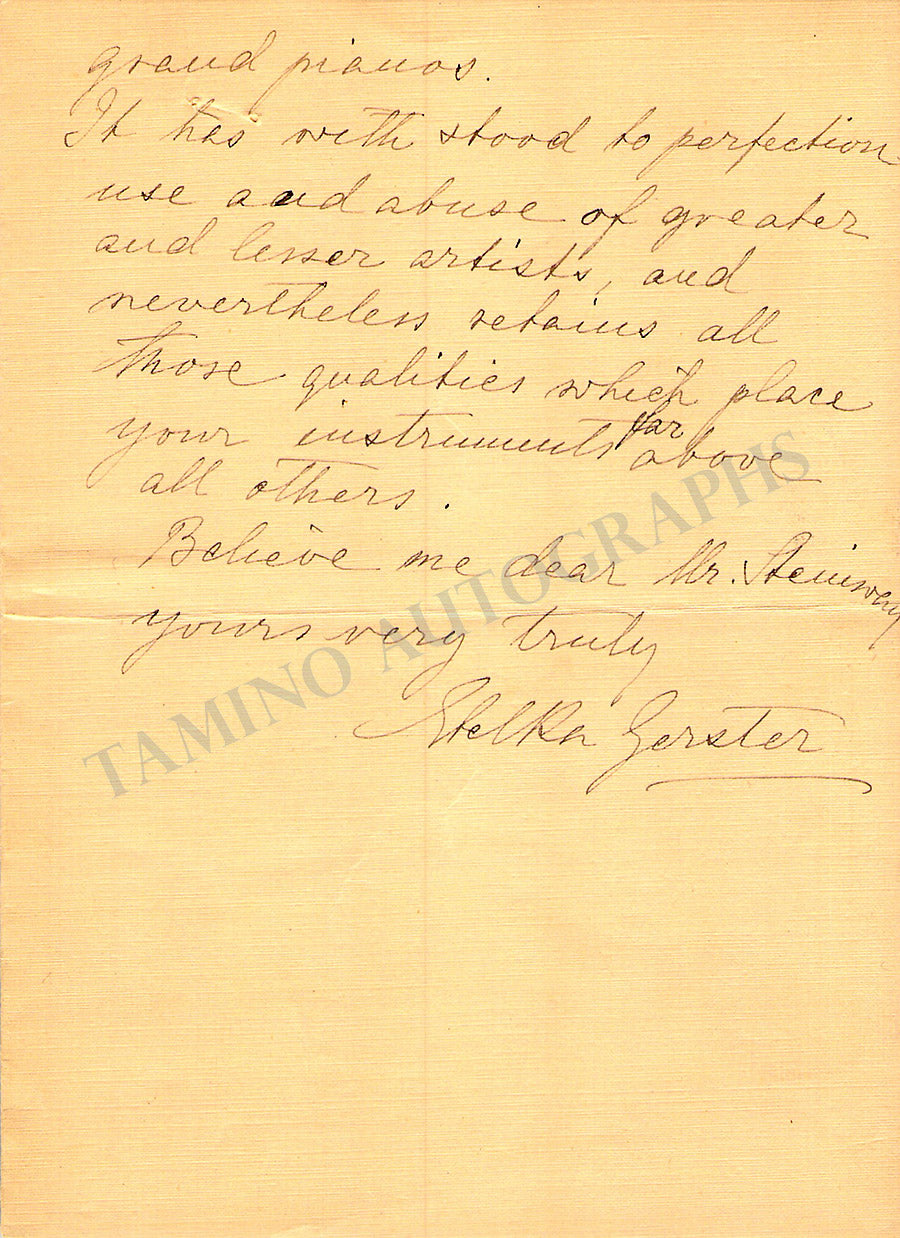 grand pianos.
It has with stood to perfection
use and abuse of greater
and lesser artists, and
nevertheless retains all
those qualities which place
your instruments far above
all others.
Believe me dear Mr. Steinway
yours very truly
Etelka Gerster
TAMINO AUTOGRAPHS